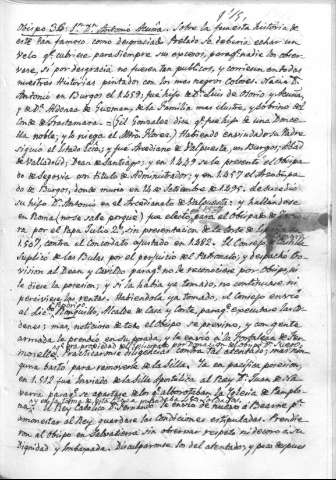 Obispo 56. Sr. Dn. Antonio Acuña. Sobre la funesta historia de
este tan famoso como desgraciado Prelado se debería echar un
velo qe. cubriese para siempre sus excesos, para qe. nadie los obser-
vase, si por desgracia no fuesen tan publicos, y corriesen en todas
nuestras Historias pintados con los mas negros Colores. Nació Dn.
Antonio en Burgos el 1459; fue hijo de Dn. Luis de Osorio y Acuña,
y de Da. Aldonza de Guzman, de la Familia mas ilustre, y sobrino del
Conde de Trastamara.= (Gil Gonzalez dice qe. fue hijo de una Doncella
noble, y lo niega el Mtro. Florez.) Habiendo enviudado su Padre
siguió el Estado Ecco., y fue Arcediano de Valpuesta, en Burgos, Abad
de Valladolid, Dean de Santiago; y en 1449 se le presentó el Obispa-
do de Segovia con titulo de Administrador; y en 1457 el
de Burgos, donde murió en 14 de Setiembre de 1495. Le sucedió
su hijo Dn. Antonio en el Arcedianato de Valpuesta: y hallandose
en Roma (no se sabe porque) fue electo para el Obispado de
por el Papa Julio 2º, sin presentacion de la Corte de
1507, contra el Concordato ajustado en 1482. El Consejo
Suplicó de las Bulas por el perjuicio del Patronato; y despachó Pro-
vision al Dean y Cavildo para qe. no le reconociese por Obispo, ni
le diese la posesion; y si la habia ya tomado, no continuase, ni
percibiese las rentas. Habiendola ya tomado, el Consejo envió
al Lic. Ronquillo, Alcalde de Casa y Corte, para qe. executase las Or-
denes: mas, noticioso de todo el Obispo se previno, y con gente
armada le prendió en su posada, y le envió a la Fortaleza de Fer-
moselle. Practicaronse diligencias contra tal atentado; mas nin-
guna bastó para removerle de la Silla. Ya en pacifica posesion,
en 1.512 fue enviado de la Silla Apostolica al Rey Dn. Juan de Na-
varra para qe. se apartase de los qe. alborotaban la Iglesia
El Rey Catolico Dn. Fernando le envió de nuevo a Bearne pa.
amonestar al Rey guardase las Condiciones estipuladas. Prendie-
ron al Obispo en Salvatierra sin observar respeto ni decoro a su
Dignidad y Embaxada. Disculparonse los del atentado, y poco despues